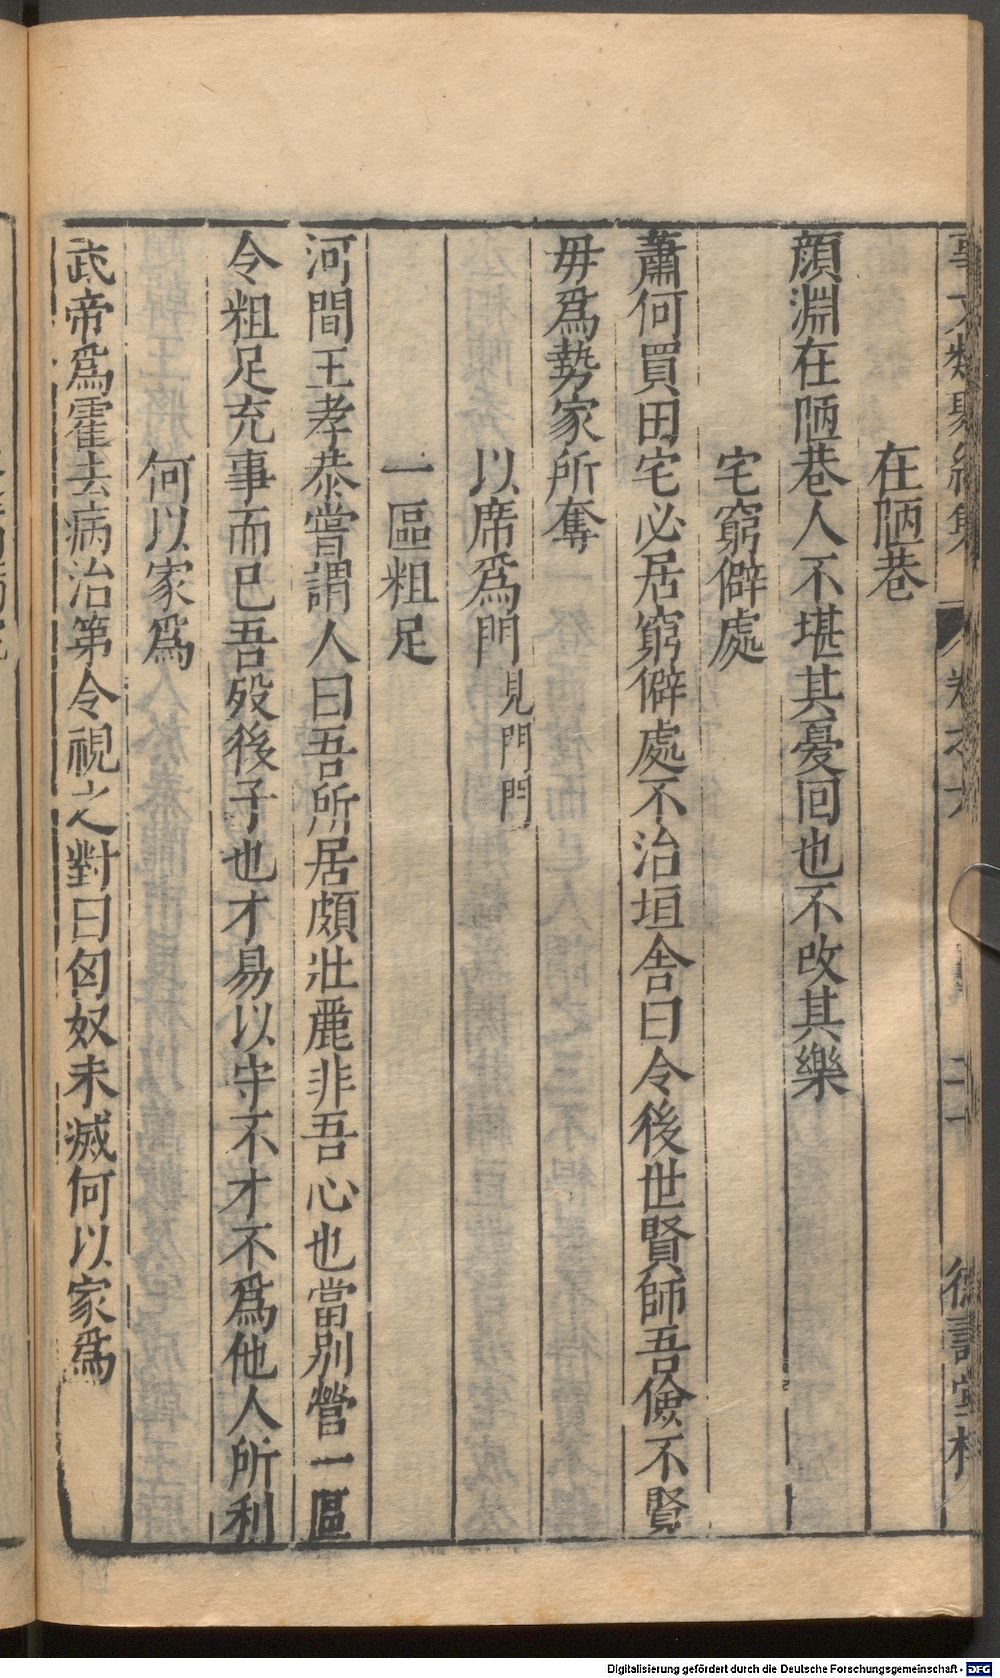 在陋巷
顔淵在陋巷人不堪其憂回也不改其樂
宅窮僻處
蕭何買田宅必居窮僻處不治垣舎曰令後世賢師吾儉不賢
毋爲勢家所奪
以席爲門見門門
一區粗足
河間王孝恭嘗謂人曰吾所居頗壯麗非吾心也當別營一區
令粗足充事而已吾殁後子也才易以守不才不爲他人所利
何以家爲
武帝爲霍去病治第令視之對曰匈奴未滅何以家爲
Digitalisierung gefördert durch die Deutsche Forschungsgemeinschaft - DFG